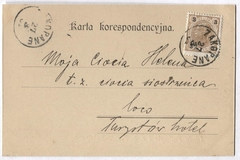 Karta korespondencyjna.
ZAKOPANE
ZAKOPANE
Moja Ciocia Helena
t. z. ciocia siostrzenica
loco
Turystów hotel